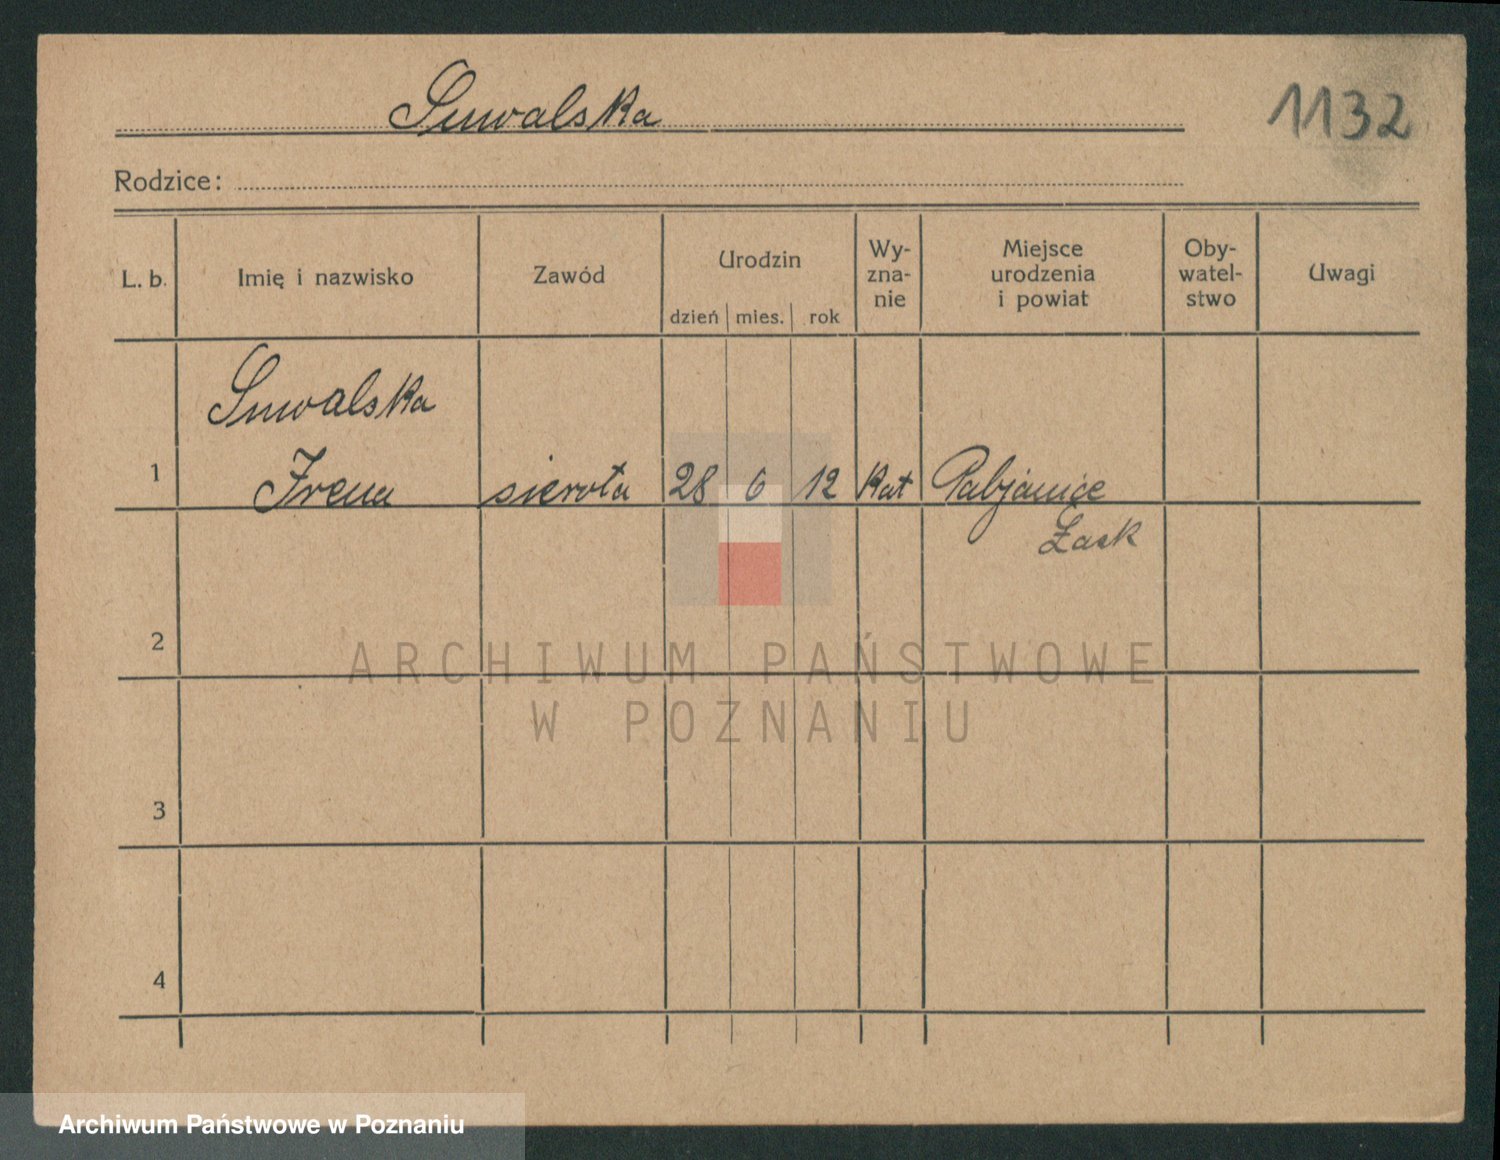 Suwalska
1132
Rodzice:
L. b.
Imię i nazwisko
Zawód
Urodzin
dzień mies. rok
Wy-
zna-
nie
Miejsce
urodzenia
i powiat
Oby-
watel-
stwo
Uwagi
Suwalska
1 Irena sierota 28 6 12 Kat Pabjanice
Łask
2
ARCHIWUM PAŃSTWOWE
W POZNANIU
3
4
Archiwum Państwowe w Poznaniu